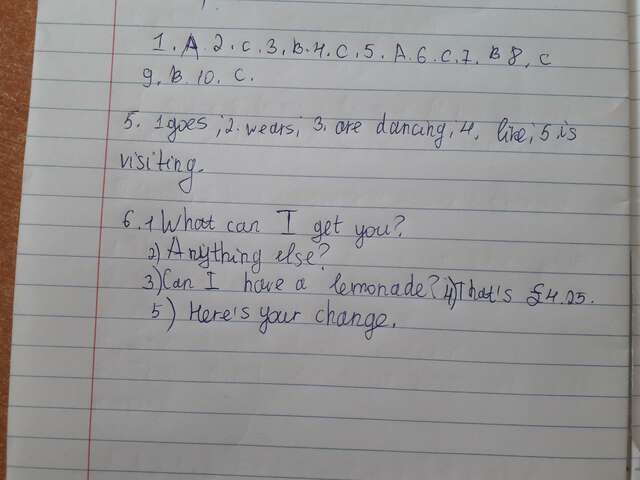 1. A. 2. C. 3. B. 4. C. 5. A. 6. C. 7. B 8. C
9. B. 10. C.
5. 1 goes; 2. wears; 3. are dancing; 4. like; 5 is
visiting.
6. 1 What can I get you?
2) Anything else?
3) Can I have a lemonade? 4) That's £4.25.
5) Here's your change.